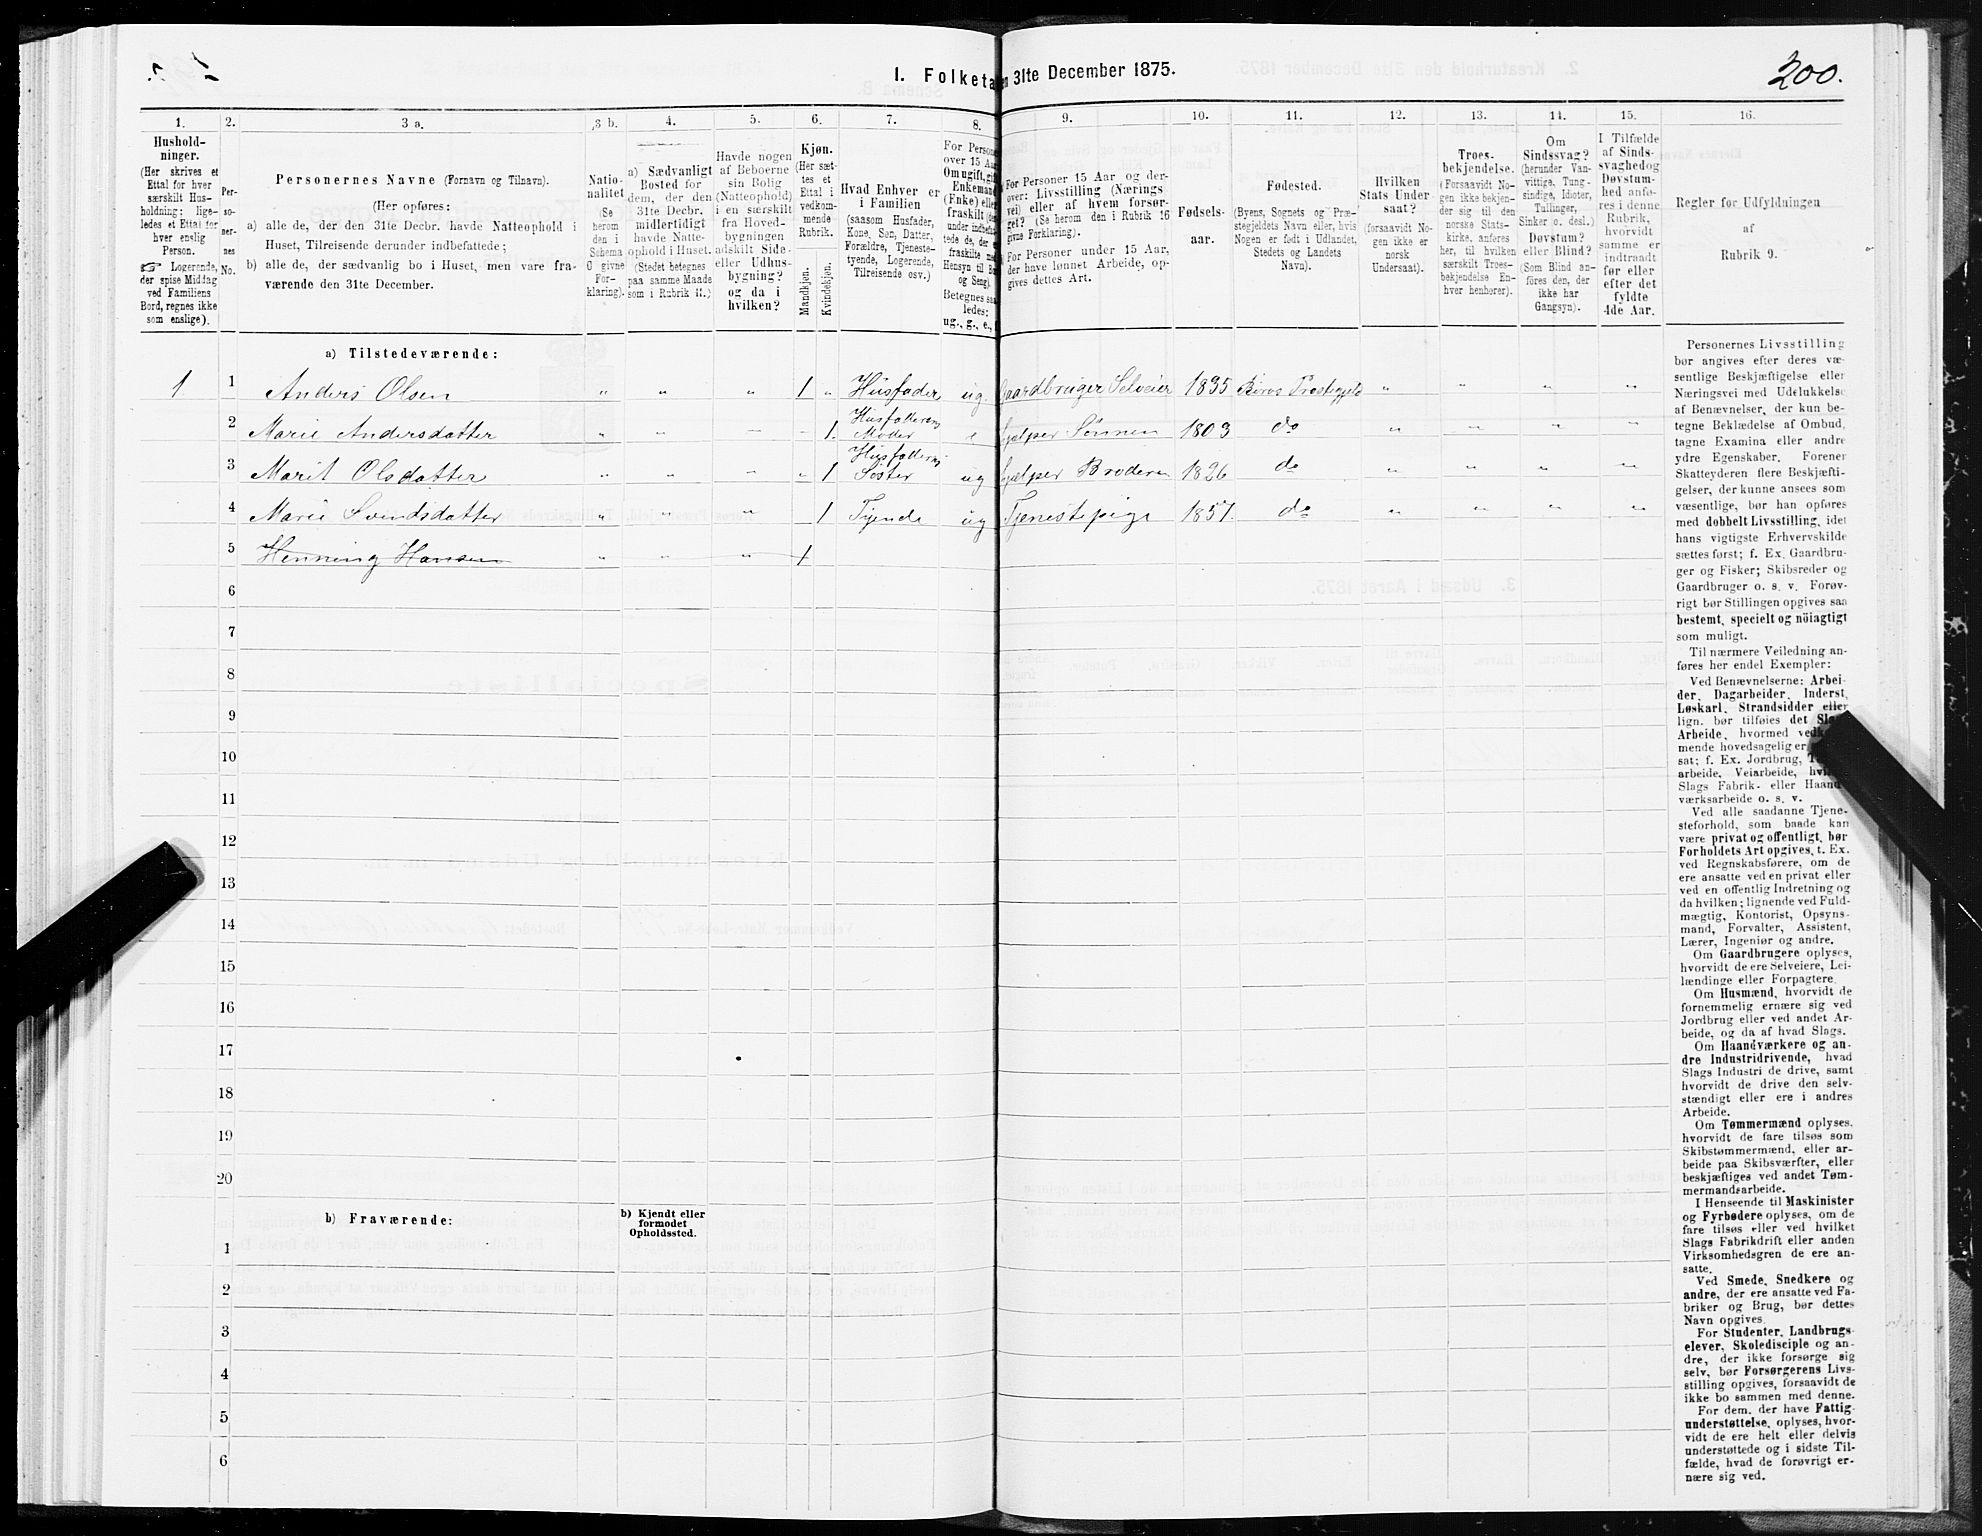 I. Folketa en 31te December 1875.
200.
1. 2. 3 a. 3 b. 4. 5. 6. 7. 8. 9. 10. 11. 12. 13. 14. 15. 16.
Hushold-
ninger.
(Her skrives et
Ettal for hver
særskilt Hus-
holdning; lige-
ledes et Ettal for
hver enslig
Person.
☞ Logerende,
der spise Middag
ved Familiens
Bord, regnes ikke
som enslige).
Per-
so-
ner-
nes
No.
Personernes Navne (Fornavn og Tilnavn).
(Her opføres:
a) alle de, der den 31te Decbr. havde Natteophold i
Huset, Tilreisende derunder indbefattede;
b) alle de, der sædvanlig bo i Huset, men vare fra-
værende den 31te December.
Natio-
nalitet
(Se
herom
den i
Schema
O givne
For-
klaring).
a) Sædvanligt
Bosted for
dem, der den
31te Decbr.
midlertidigt
havde Natte-
ophold i Huset.
(Stedet betegnes
paa samme Maade
som i Rubrik 11.)
Havde nogen
af Beboerne
sin Bolig
(Natteophold)
i en særskilt
fra Hoved-
bygningen
adskilt Side-
eller Udhus-
bygning?
og da i
hvilken?
Kjøn.
(Her sæt-
tes et
Ettal i
vedkom-
mende
Rubrik.
Mandkjøn.
Kvindekjøn.
Hvad Enhver er
i Familien
(saasom Husfader,
Kone, Søn, Datter,
Forældre, Tjeneste-
tyende, Logerende,
Tilreisende osv.)
For Persone
over 15 Aar
Om ugift, gift
Enkemand
(Enke) eller
fraskilt (de
under indbefat-
tede de, der e
fraskilte med
Hensyn til Bo
og Seng).
Betegnes saa-
ledes:
ug., g., e.,
For Personer 15 Aar og der-
over: Livsstilling (Nærings
vei) eller af hvem forsør-
get? (Se herom den i Rubrik 16
givne Forklaring).
For Personer under 15 Aar,
der have lønnet Arbeide, op-
gives dettes Art.
Fødsels-
aar.
Fødested.
(Byens, Sognets og Præ-
stegjeldets Navn eller, hvis
Nogen er født i Udlandet,
Stedets og Landets
Navn).
Hvilken
Stats Under
saat?
(forsaavidt No-
gen ikke er
norsk
Undersaat).
Troes-
bekjendelse.
(Forsaavidt No-
gen ikke bekjen-
der sig til den
norske Stats-
kirke, anføres
her, til hvilken
særskilt Troes-
bekjendelse En-
hver henhører).
Om
Sindssvag?
(herunder Van-
vittige, Tung-
sindige, Idioter,
Tullinger,
Sinker o. desl.)
Døvstum?
eller Blind?
(Som Blind an-
føres den, der
ikke har
Gangsyn).
I Tilfælde
af Sinds-
svaghed og
Døvstum-
hed anfø-
res i denne
Rubrik,
hvorvidt
samme er
indtraadt
før eller
efter det
fyldte
4de Aar.
Regler for Udfyldningen
af
Rubrik 9.
a) Tilstedeværende:
1. 1 Anders Olsen „ „ „ 1 „ Husfader ug. Gaardbruger Selveier 1835 Røros Præstegjeld „ „ „ „
2 Marie Andersdatter „ „ „ – 1. Husfaderens Moder e hjælper Sønnen 1803 do „ „ „ „
3 Marit Olsdatter „ „ „ „ 1 Husfaderens Søster ug hjælper Broderen 1826 do „ „ „ „
4 Marie Svendsdatter „ „ „ 1 Tjende ug Tjenestepige 1857. do „ „ „ „
5 Henning Hansen „ „ „ 1
6
7
8
9
10
11
12
13
14
15
16
17
18
19
20
b) Fraværende:
b) Kjendt eller
formodet
Opholdssted.
1
2
3
4
5
6
Personernes Livsstilling
bør angives efter deres væ-
sentlige Beskjæftigelse eller
Næringsvei med Udelukkelse
af Benævnelser, der kun be-
tegne Beklædelse af Ombud,
tagne Examina eller andre
ydre Egenskaber. Forener
Skatteyderen flere Beskjæfti-
gelser, der kunne ansees som
væsentlige, bør han opføres
med dobbelt Livsstilling, idet
hans vigtigste Erhvervskilde
sættes først; f. Ex. Gaardbru-
ger og Fisker; Skibsreder og
Gaardbruger o. s. v. Forøv-
rigt bør Stillingen opgives saa
bestemt, specielt og nöiagtigt
som muligt.
Til nærmere Veiledning an-
føres her endel Exempler:
Ved Benævnelserne: Arbei-
der, Dagarbeider, Inderst,
Løskarl, Strandsidder eller
lign. bør tilføies det Slags
Arbeide, hvormed vedkom-
mende hovedsagelig er
sat; f. Ex. Jordbrug, T
arbeide, Veiarbeide, hvil
Slags Fabrik- eller Haand-
værksarbeide o. s. v.
Ved alle saadanne Tjene-
steforhold, som baade kan
være privat og offentligt, bør
Forholdets Art opgives, t. Ex.
ved Regnskabsførere, om de
ere ansatte ved en privat eller
ved en offentlig Indretning og
da hvilken; lignende ved Fuld-
mægtig, Kontorist, Opsyns-
mand, Forvalter, Assistent,
Lærer, Ingeniør og andre.
Om Gaardbrugere oplyses,
hvorvidt de ere Selveiere, Lei-
lændinge eller Forpagtere.
Om Husmænd, hvorvidt de
fornemmelig ernære sig ved
Jordbrug eller ved andet Ar-
beide, og da af hvad Slags.
Om Haandværkere og an-
dre Industridrivende, hvad
Slags Industri de drive, samt
hvorvidt de drive den selv-
stændigt eller ere i andres
Arbeide.
Om Tømmermænd oplyses,
hvorvidt de fare tilsøs som
Skibstømmermænd, eller ar-
beide paa Skibsværfter, eller
beskjæftiges ved andet Tøm-
mermandsarbeide.
I Henseende til Maskinister
og Fyrbødere oplyses, om de
fare tilsøs eller ved hvilket
Slags Fabrikdrift eller anden
Virksomhedsgren de ere an-
satte.
Ved Smede, Snedkere og
andre, der ere ansatte ved Fa-
briker og Brug, bør dettes
Navn opgives.
For Studenter, Landbrugs-
elever, Skoledisciple og an-
dre, der ikke forsørge sig
selv, bør Forsørgerens Livs-
stilling opgives, forsaavidt de
ikke bo sammen med denne.
For dem, der have Fattig-
understøttelse, oplyses, hvor-
vidt de ere helt eller delvis
understøttede og i sidste Til-
fælde, hvad de forøvrigt er-
nære sig ved.